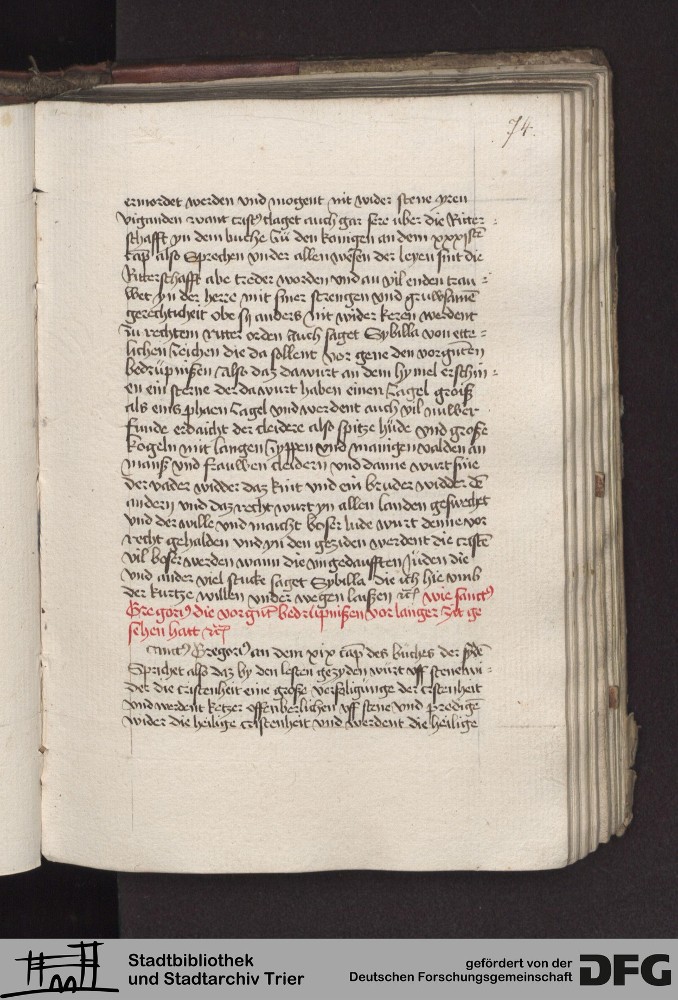 74.
ermordet werden vnd mogent nit wider stene yren
viganden want cristꝰ claget auch gar sere uber die Ritter-
schafft yn dem buche Zů den konigen an dem xxxisten
cap̄ also Sprechen vnder allen wesen der leyen sint die
Ritterschafft abe treder worden vnd an vil enden trau-
wet yn der herre mit siner strengen vnd gruwsamē
gerechticheit obe sij anders nit wider keren werdent
zu rechtem ritter orden Auch saget Sybilla von ette-
lichen zeichen die da sollent vor gene den vorgutē
bedrüpnißen Also daz da wurt an dem hymel erschin-
en ein sterne der da wurt haben einen zagel groiß
als eins phaen zagel vnd werdent auch vil nuwer
funde erdaicht der cleidere also spitze hüde vnd große
kogeln mit langen zyppen vnd manigen valden an
manß vnd frauwen cleidern vnd danne wurt sine
der vader widder daz kint vnd ein bruder widder dē
andern vnd daz recht wurt yn allen landen geswechet
vnd der wille vnd maicht boser lude wurt denne vor
recht gehalden vnd yn den geziden werdent die cristē
vil boser werden wann die vngedaufften Jüden die
vnd ander viel stucke saget Sybilla die ich hie vmb
der kurtze willen vnder wegen laißen ꝛc̄ wie sanctꝰ
Gregoriꝰ die vorgnt̄ bedrüpnißen vor langer zijt ge
sehen hatt ꝛc̄
anctꝰ Gregoriꝰ an dem xix cap̄ des büches der
Sprichet also daz by den lesten gezyden würt vff stene wi-
der die cristenheit eine große verfolgünge der cristenheit
vnd werdent ketzer offenberlichen vff stene vnd predigē
wider die heilige cristenheit vnd werdent die heilige
Stadtbibliothek
und Stadtarchiv Trier
gefördert von der
Deutschen Forschungsgemeinschaft
DFG